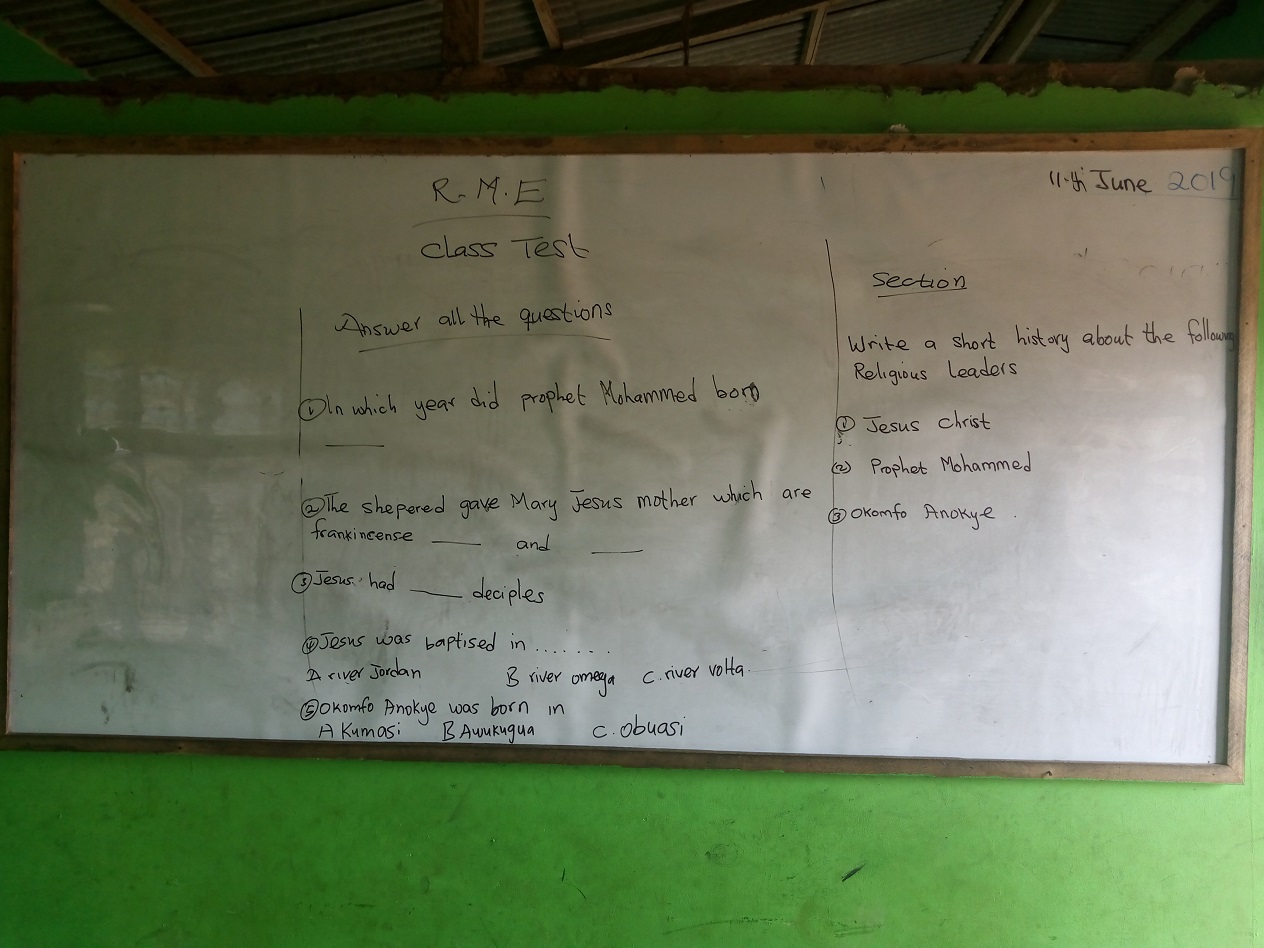 R.M.E
Class Test
Answer all the questions
① In which year did prophet Mohammed born
____
② The shepered gave Mary Jesus mother which are
frankincense ____ and ____
③ Jesus had ____ deciples
④ Jesus was baptised in .......
A river Jordan B river omega C. river volta.
⑤ Okomfo Anokye was born in
A Kumasi B Awukugua C. Obuasi
11th June 2019
Section
Write a short history about the following
Religious Leaders
① Jesus Christ
② Prophet Mohammed
③ Okomfo Anokye.